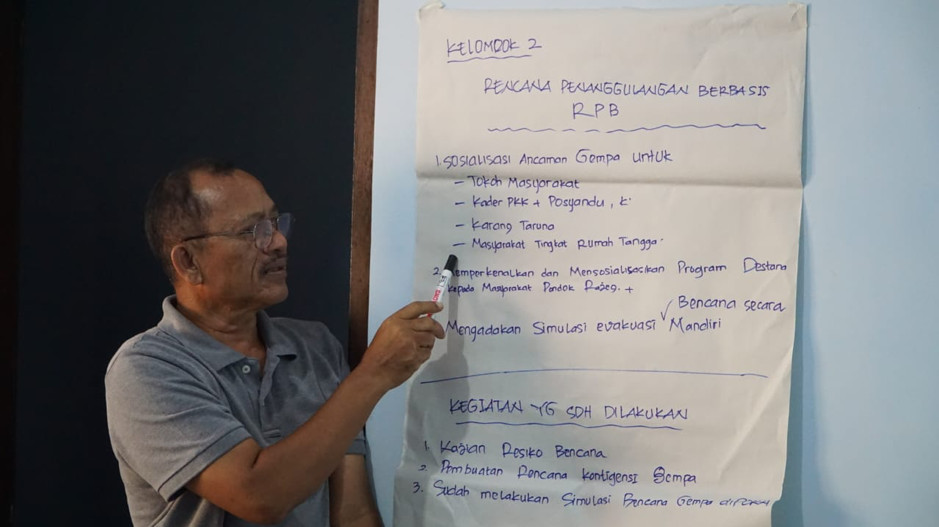 KELOMPOK 2
RENCANA PENANGGULANGAN BERBASIS
RPB
1. SOSIALISASI Ancaman Gempa UNTUK
- Tokoh Masyarakat
- Kader PKK + Posyandu,
- Karang Taruna
- Masyarakat Tingkat Rumah Tangga.
2. Memperkenalkan dan Mensosialisasikan Program Destana
kepada Masyarakat Pondok +
Bencana secara
Mengadakan Simulasi evakuasi √ Mandiri
KEGIATAN YG SDH DILAKUKAN
1. Kajian Resiko Bencana
2. Pembuatan Rencana Kontigensi Gempa
3. Sudah melakukan Simulasi Bencana Gempa